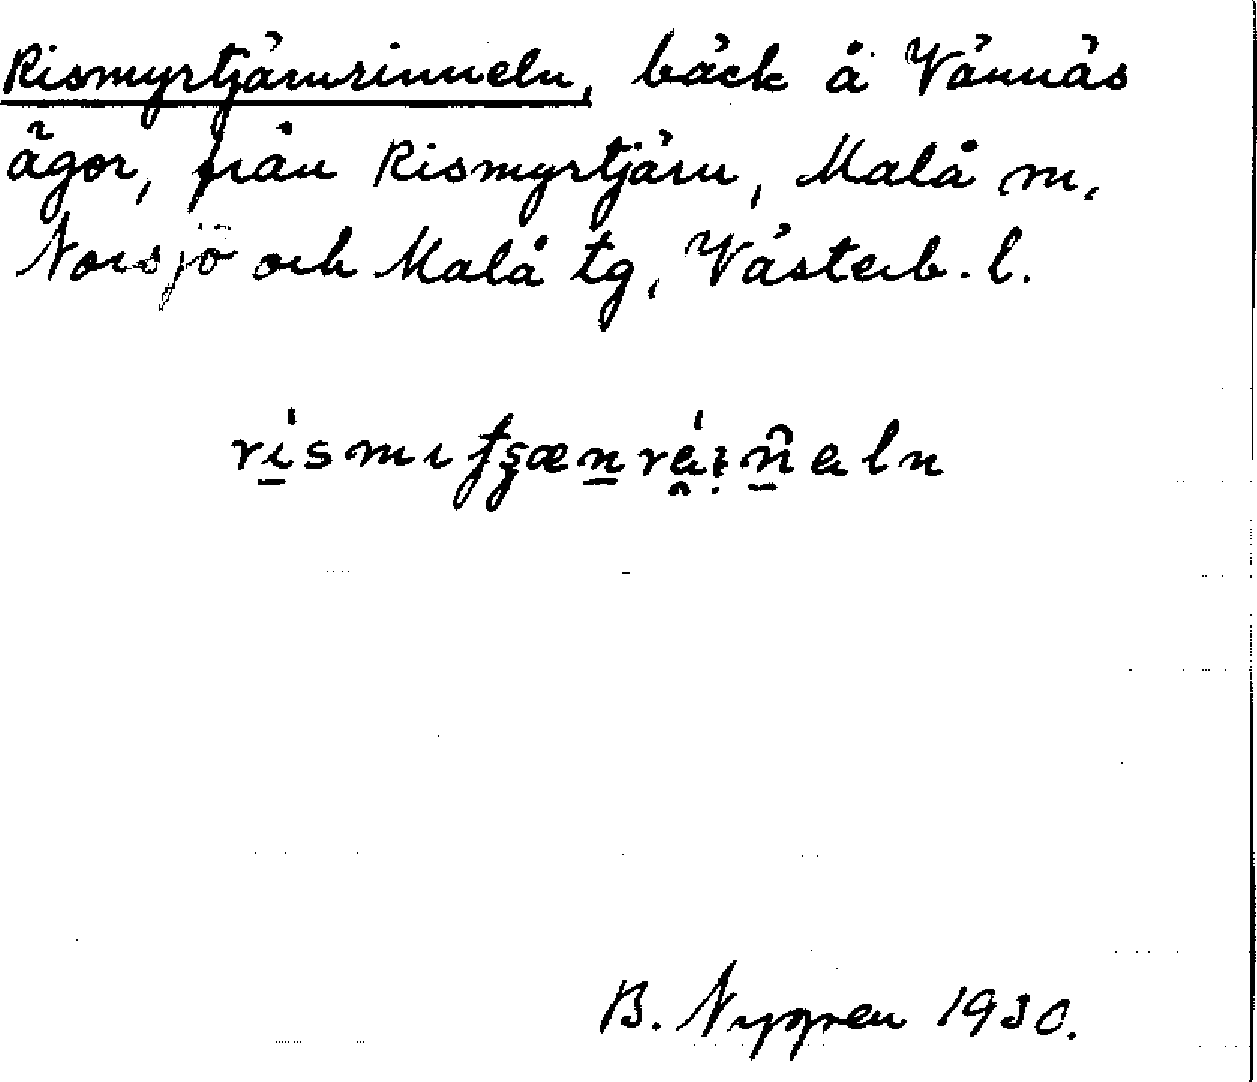 Rismyrtjärnrinneln, bäck å Vännäs
ägor, från Rismyrtjärn, Malå sn,
Norsjö och Malå tg, Västerb. l.
B. Nygren 1930.